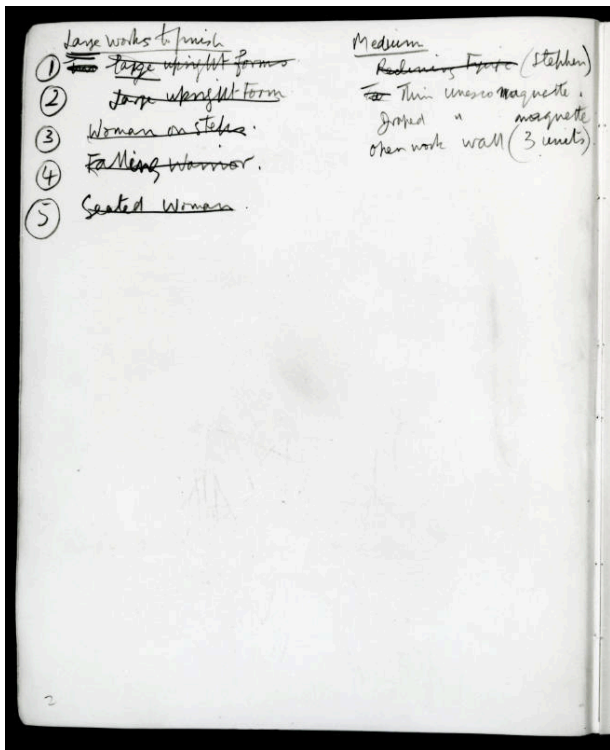 Large works to finish
① large upright forms
② Large upright Form
③ Woman on steps.
④ Falling Warrior.
⑤ Seated Woman.
Medium
Reclining Figure (Stephen)
Thin unesco maquette.
Draped " maquette
open work wall (3 units)
2